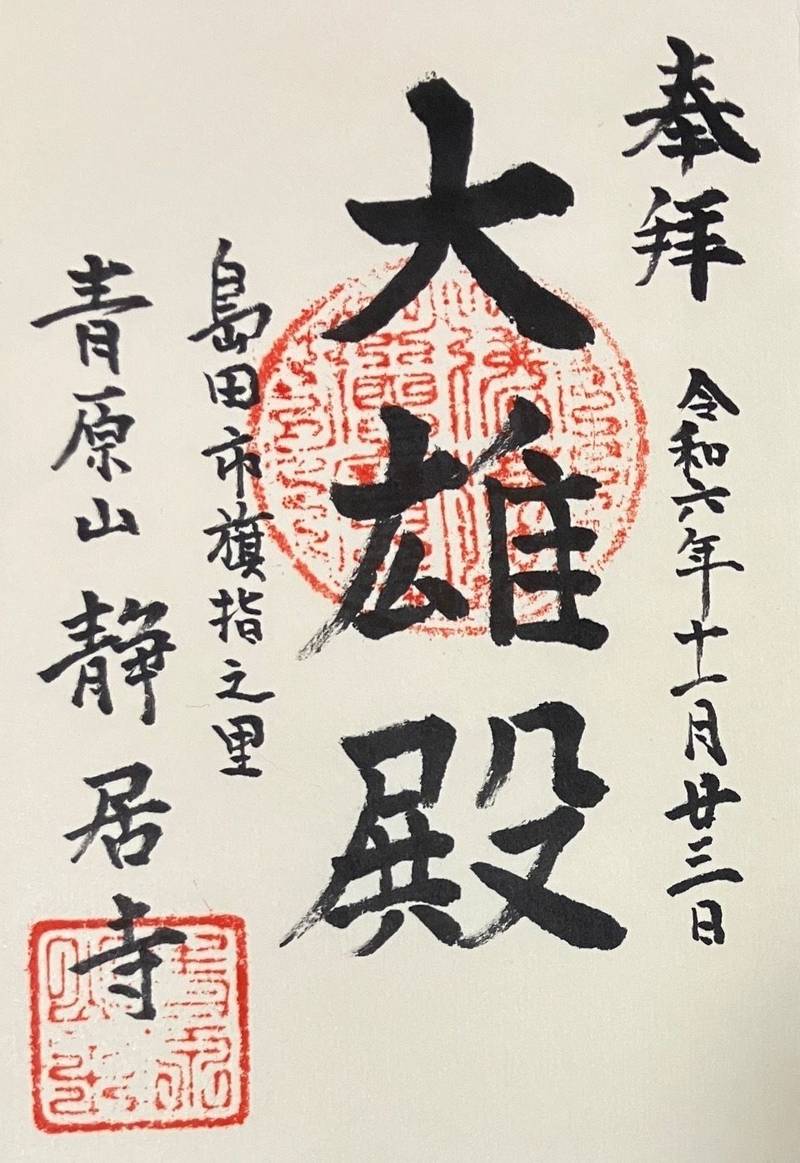 奉拝
令和六年十一月廿三日
大雄殿
島田市旗指之里
青原山 静居寺